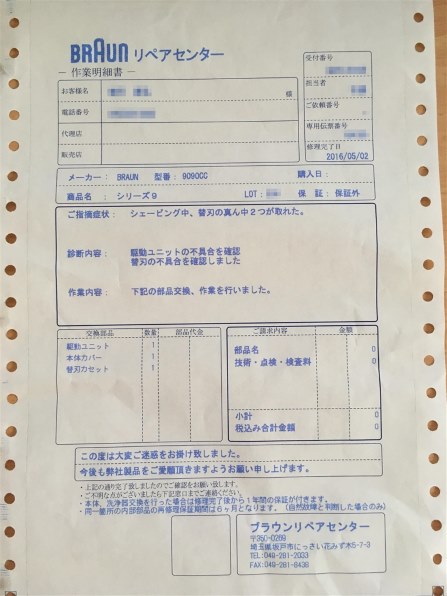 BRAUN リペアセンター
― 作業明細書 ―
受付番号
担当者
ご依頼番号
専用伝票番号
修理完了日
2016/05/02
お客様名 様
電話番号
代理店
販売店
メーカー: BRAUN 型番: 9090CC 購入日:
商品名: シリーズ9 LOT: 保証: 保証外
ご指摘症状: シェービング中、替刃の真ん中2つが取れた。
診断内容: 駆動ユニットの不具合を確認
替刃の不具合を確認しました
作業内容: 下記の部品交換、作業を行いました。
交換部品 数量 部品代金
駆動ユニット 1
本体カバー 1
替刃カセット 1
ご請求内容 金額
部品名 0
技術・点検・検査料 0
小計 0
税込み合計金額 0
この度は大変ご迷惑をお掛け致しました。
今後も弊社製品をご愛顧頂きますようお願い申し上げます。
・上記の通り完了致しましたのでご確認をお願い致します。
・ご不明な点がございましたら下記窓口までご連絡ください。
・本体、洗浄器交換を行った場合は修理完了後から1年間の保証が付きます。
・同一箇所の内部部品の再修理保証期間は6ヶ月となります。(自然故障と判断した場合のみ)
ブラウンリペアセンター
〒350-0269
埼玉県坂戸市にっさい花みず木5-7-3
TEL:049-281-2033
FAX:049-281-8438